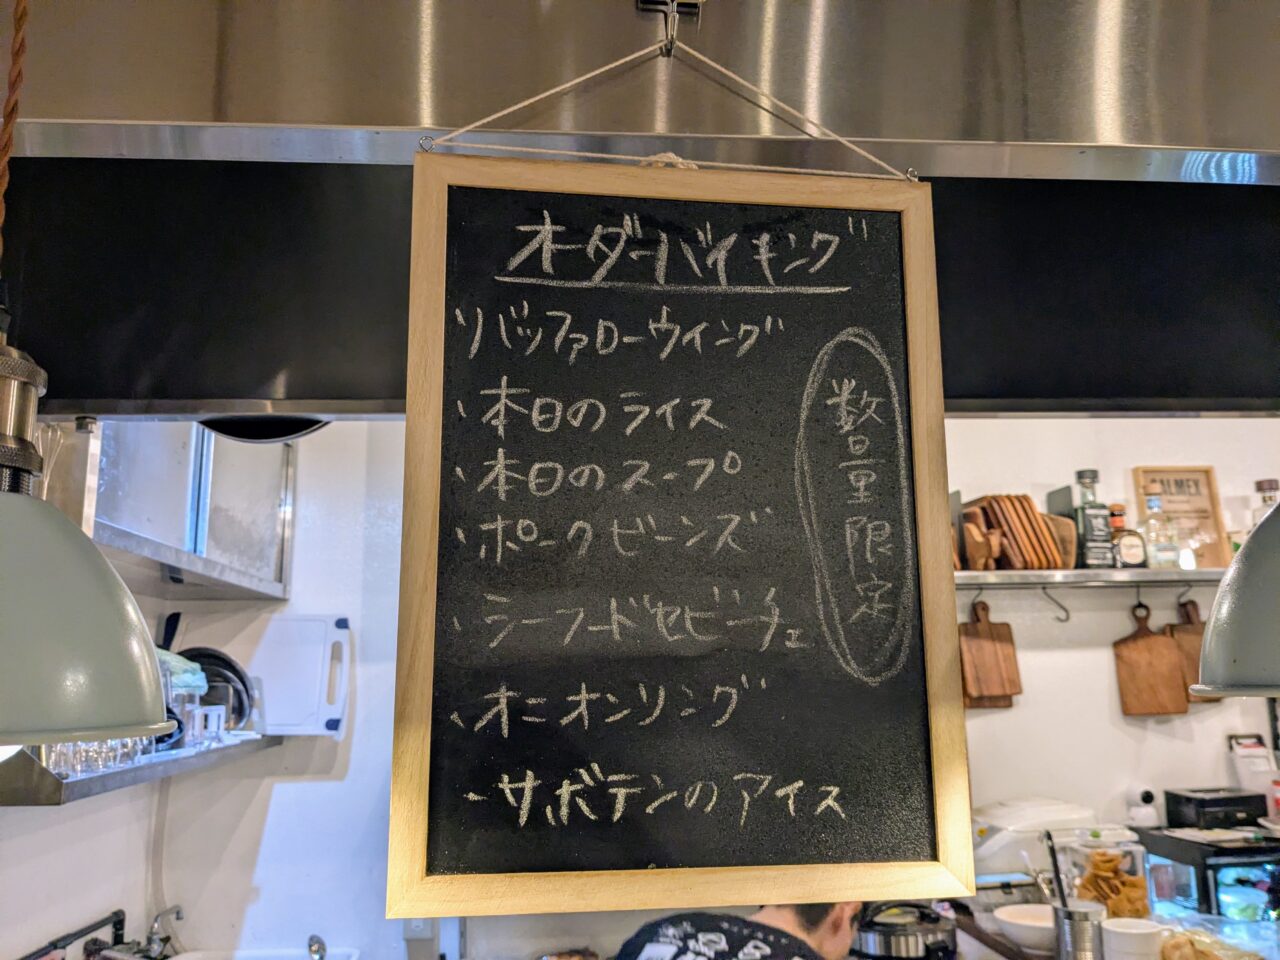 オーダーバイキング
・バッファローウィング
・本日のライス
・本日のスープ
・ポークビーンズ
・シーフードセビーチェ
・オニオンリング
・サボテンのアイス
数量限定
CALMEX